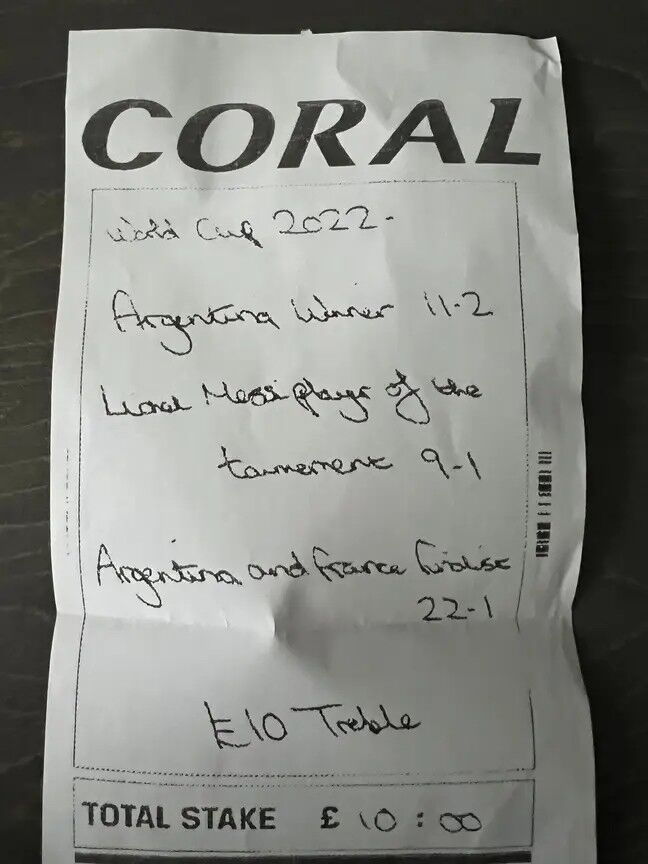 CORAL
World Cup 2022.
Argentina Winner 11-2
Lionel Messi player of the
tournement 9-1
Argentina and France finalist
22-1
£10 Treble
TOTAL STAKE £ 10:00